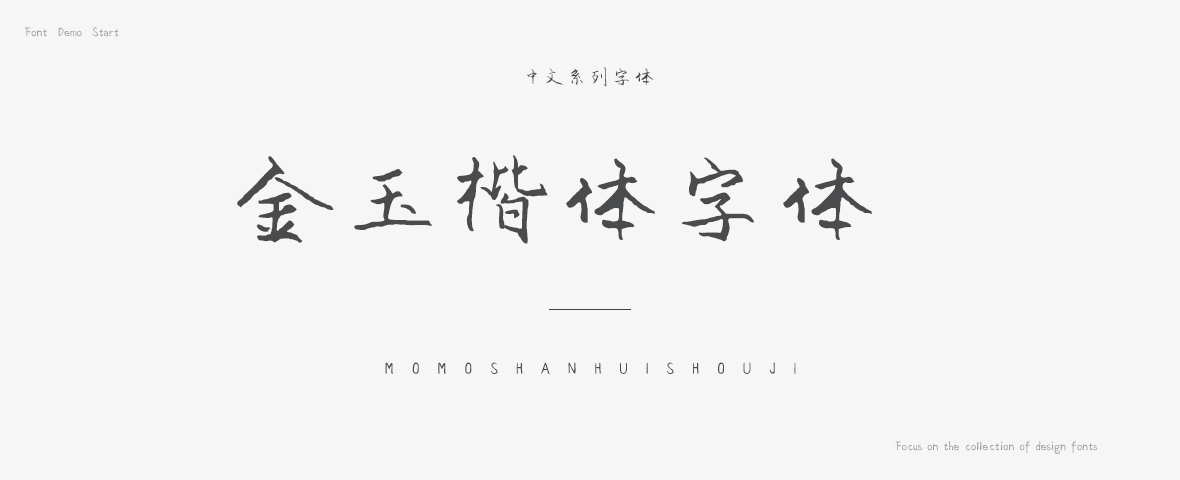 Font Demo Start
中文系列字体
金玉楷体字体
MOMOSHANHUISHOUJI
Focus on the collection of design fonts